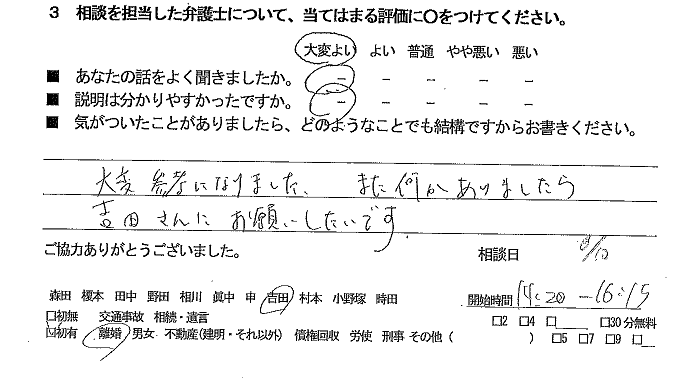 3 相談を担当した弁護士について、当てはまる評価に○をつけてください。
大変よい よい 普通 やや悪い 悪い
■ あなたの話をよく聞きましたか。 － － － － －
■ 説明は分かりやすかったですか。 － － － － －
■ 気がついたことがありましたら、どのようなことでも結構ですからお書きください。
大変参考になりました、 また何かありましたら
吉田さんにお願いしたいです
ご協力ありがとうございました。 相談日
森田 榎本 田中 野田 相川 眞中 申 吉田 村本 小野塚 時田 開始時間 14:20 -16:15
□初無 交通事故 相続・遺言 □2 □4 □____ □30分無料
□初有 離婚 男女 不動産(建明・それ以外) 債権回収 労使 刑事 その他 ( ) □5 □7 □9 □____